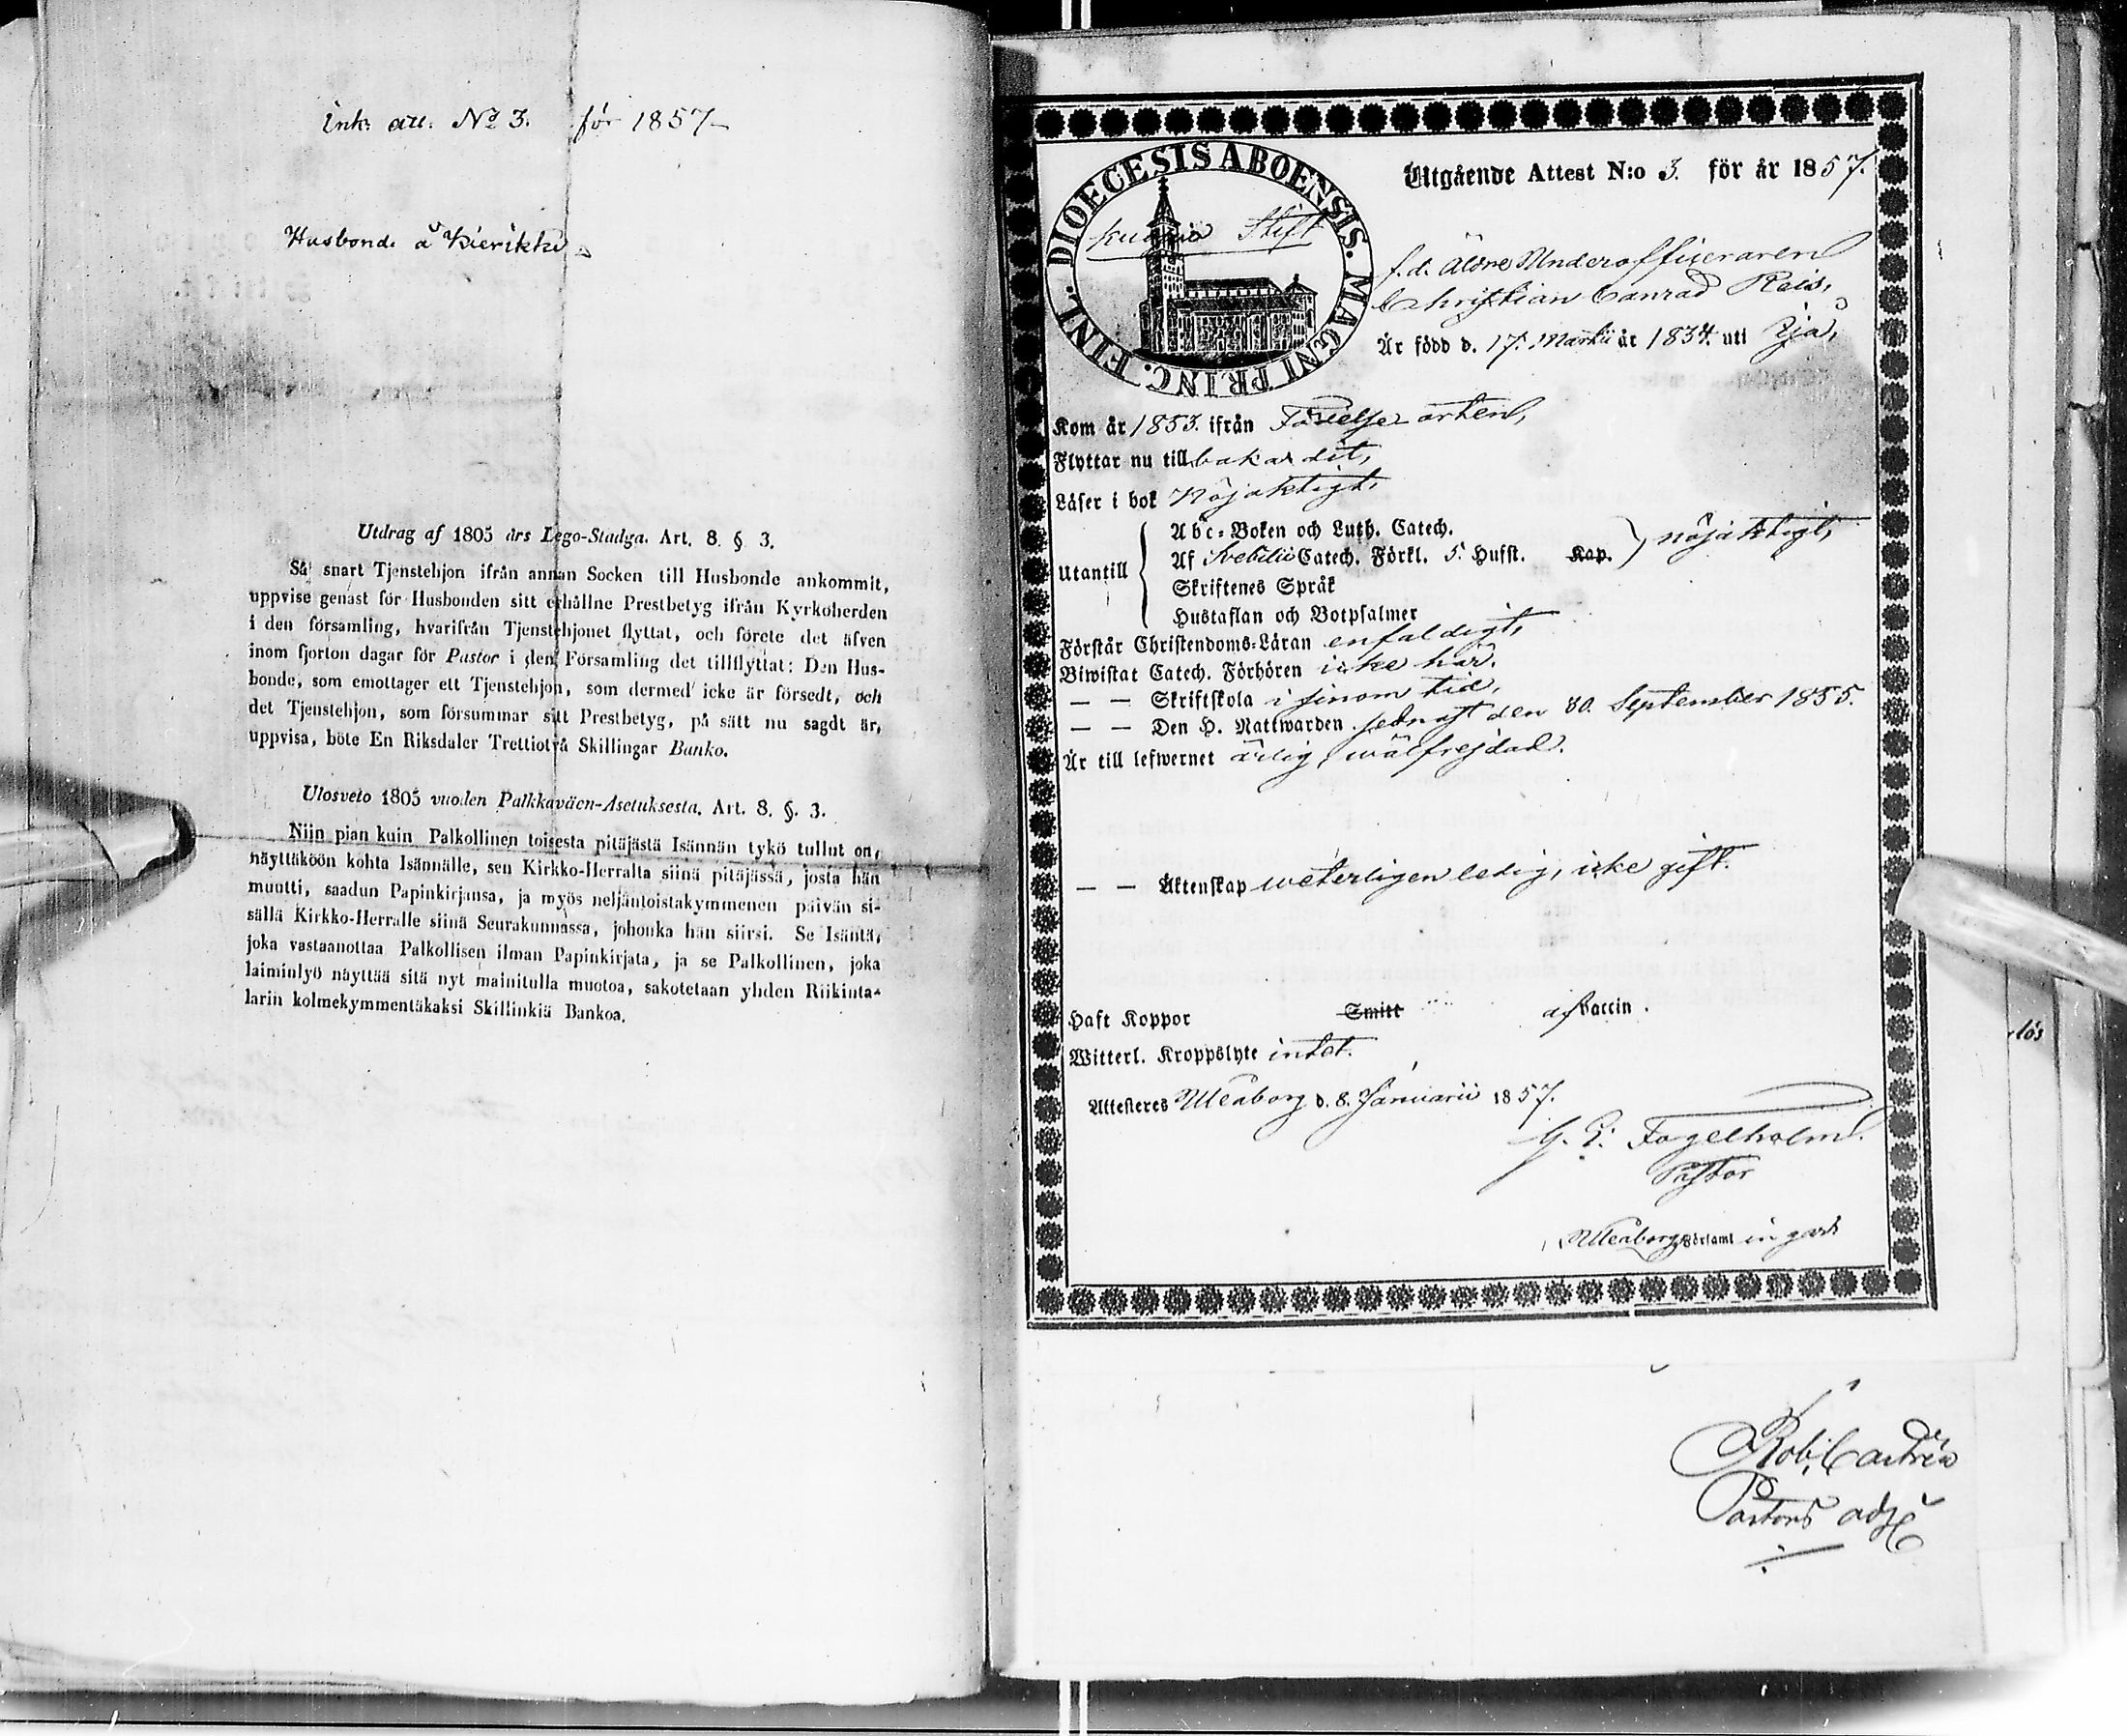 Ink. att. No 3. för 1857
Husbonde å Kierikki
Utdrag af 1805 års Lego-Stadga. Art. 8. § 3.
Så snart Tjenstehjon ifrån annan Socken till Husbonde ankommit,
uppvise genast för Husbonden sitt erhållne Prestbetyg ifrån Kyrkoherden
i den församling, hvarifrån Tjenstehjonet flyttat, och förete det äfven
inom fjorton dagar för Pastor i den Församling det tillflyttat: Den Hus-
bonde, som emottager ett Tjenstehjon, som dermed icke är försedt, och
det Tjenstehjon, som försummar sitt Prestbetyg, på sätt nu sagdt är,
uppvisa, böte En Riksdaler Trettiotvå Skillingar Banko.
Ulosveto 1805 vuoden Palkkaväen-Asetuksesta. Art. 8. §. 3.
Niin pian kuin Palkollinen toisesta pitäjästä Isännän tykö tullut on,
näyttäköön kohta Isännälle, sen Kirkko-Herralta siinä pitäjässä, josta hän
muutti, saadun Papinkirjansa, ja myös neljäntoistakymmenen päivän si-
sällä Kirkko-Herralle siinä Seurakunnassa, johonka hän siirsi. Se Isäntä,
joka vastaanottaa Palkollisen ilman Papinkirjata, ja se Palkollinen, joka
laiminlyö näyttää sitä nyt mainitulla muotoa, sakotetaan yhden Riikinta-
larin kolmekymmentäkaksi Skillinkiä Bankoa.
DIOECESIS ABOENSIS. MAGNI PRINC. FINL.
Kuopio Stift
Utgående Attest N:o 3. för år 1857.
f.d. Äldre Underofficeraren
Christian Conrad Reis,
Är född d. 17. Martii år 1834. uti Ijå,
Kom år 1853. ifrån Födelse orten,
Flyttar nu till baka dit,
Läser i bok Nöjaktigt,
Utantill
Abc-Boken och Luth. Catech.
Af Svebilii Catech. Förkl. 5. Hufst. Kap. nöjaktigt,
Skriftenes Språk
Hustaflan och Botpsalmer
Förstår Christendoms-Läran enfaldigt,
Biwistat Catech. Förhören icke här.
— — Skriftskola i sinom tid,
— — Den H. Nattwarden sednast den 30. September 1855.
Är till lefwernet ärlig, wälfrejdad.
— — Äktenskap weterligen ledig, icke gift.
Haft Koppor Smitt af Vaccin.
Witterl. Kroppslyte intet.
Attesteras Uleåborg d. 8. Januarii 1857.
Fogelholm
Pastor
Uleåborgs Församl ingar
lös
Rob. Castrén
Pastors adj